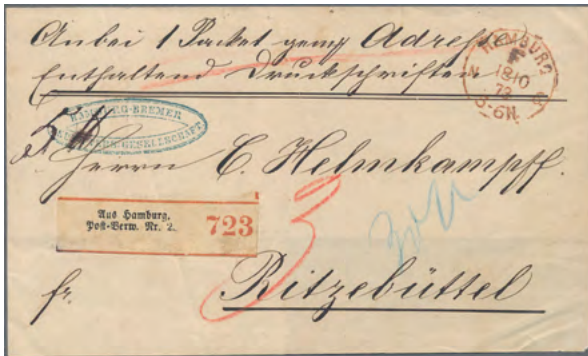 Anbei 1 Packet gemss Adresse
Enthaltend Druckschriften
HAMBURG
18 10
73
5-6N.
HAMBURG-BREMER
GESELLSCHAFT
Herrn C. Helmkampff.
Aus Hamburg.
Post-Verw. Nr. 2.
723
3
Ritzebüttel
fr.